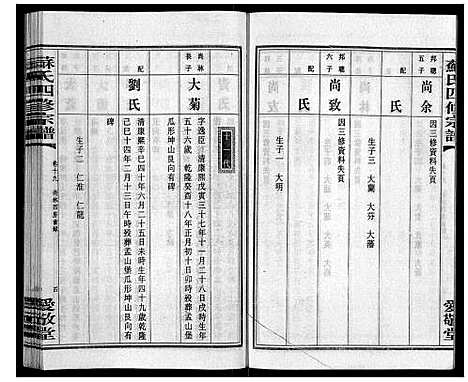 蘇氏四修宗譜
愛敬堂
邦聰
五子
尚余
因三修資料失頁
配
氏
生子三 大蘭 大芬 大藩
邦聰
六子
尚致
因三修資料失頁
配
氏
生子一 大明
十二代
尚林
長子
大菊
字逸臣清康熙戊寅三十七年十一月二十八日戌時生
五十六歲乾隆癸酉十八年正月初十日卯時歿葬孟山堡
瓜形坤山艮向有碑
配
劉氏
清康熙辛巳四十年六月二十五日未時生年四十九歲乾隆
己巳十四年二月十三日午時歿葬孟山堡瓜形坤山艮向有
碑
生子二 仁淮 仁龍
蘇氏四修宗譜
卷十九
五
愛敬堂